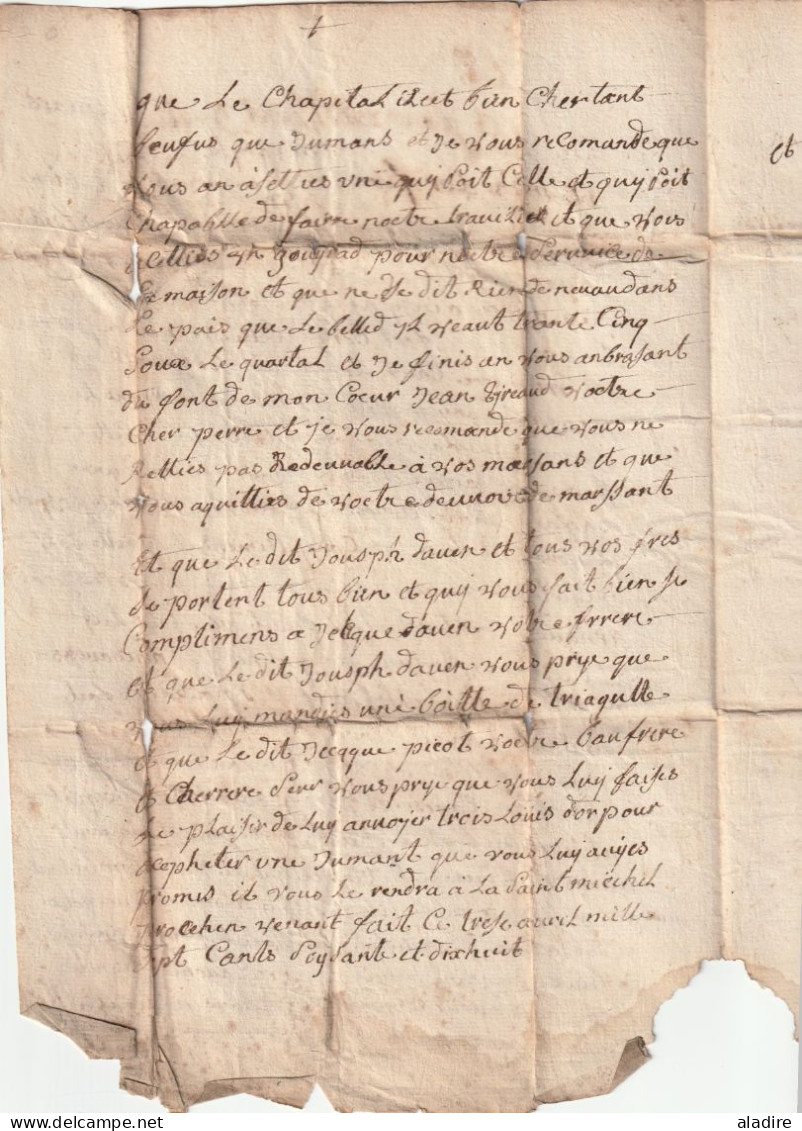 que Le Chapital il et bien Cher tant
beufus que Jumans et Je vous recomande que
vous an a setties une quy soit Celle et quy soit
Chapablle de fairre noctre et que vous
un pour noctre servuice de
La maison et que ne de dit Rien de nouvau dans
Le pais que Le belled yL veaut trante Cinq
Soux Le quartal et Je finis an vous anbrasant
du font de mon Coeur Jean Gireaud voctre
Cher perre et je vous recomande que vous ne
Retties pas Redeuvable à vos marsans et que
vous aquitties de voctre de marssant
Et que Le dit Jousph daven et tous vos fres
se portent tous bien et quy vous fait bien se
Complimens a daven votre frrere
et que Le dit Jousph daven vous prye que
vous Luy mandies une boitte de triagulle
et que Le dit Jecque picot voctre baufrere
et Cherrere seur vous prye que vous Luy faises
Le plaisir de Luy anvoyer trois Louis dor pour
acepheter une Jumant que vous Luy avies
promis il vous Le rendra à La Saint miechel
procehen venant fait Ce trese avril mille
sept Cants Soysante et dixhuit
et
aladire